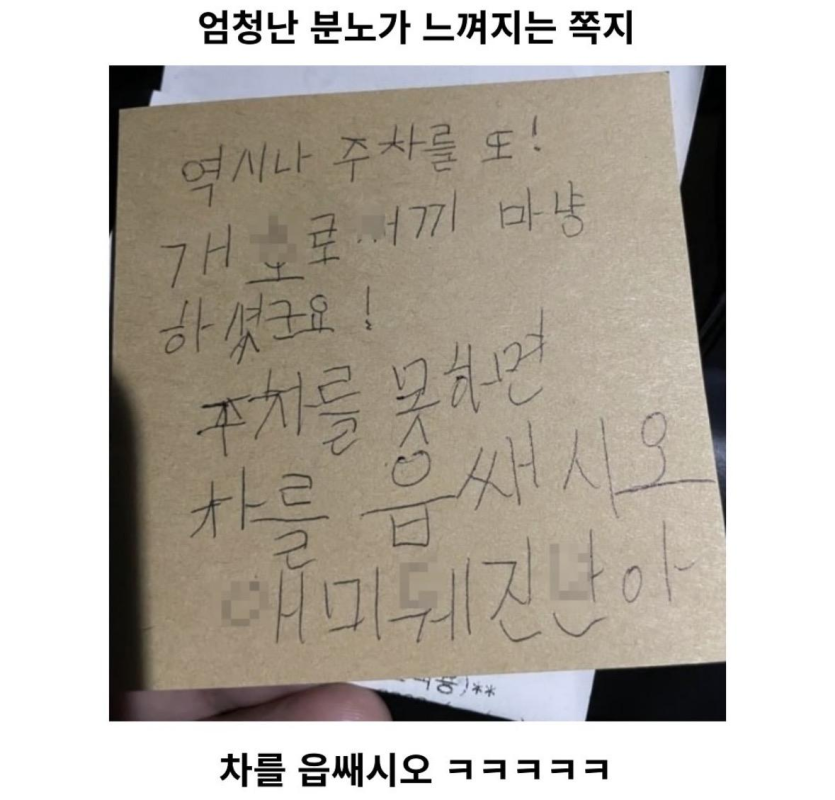 엄청난 분노가 느껴지는 쪽지
역시나 주차를 또!
개 마냥
하셧군요!
주차를 못하면
차를 읍쌔시오
차를 읍쌔시오 ㅋㅋㅋㅋㅋ